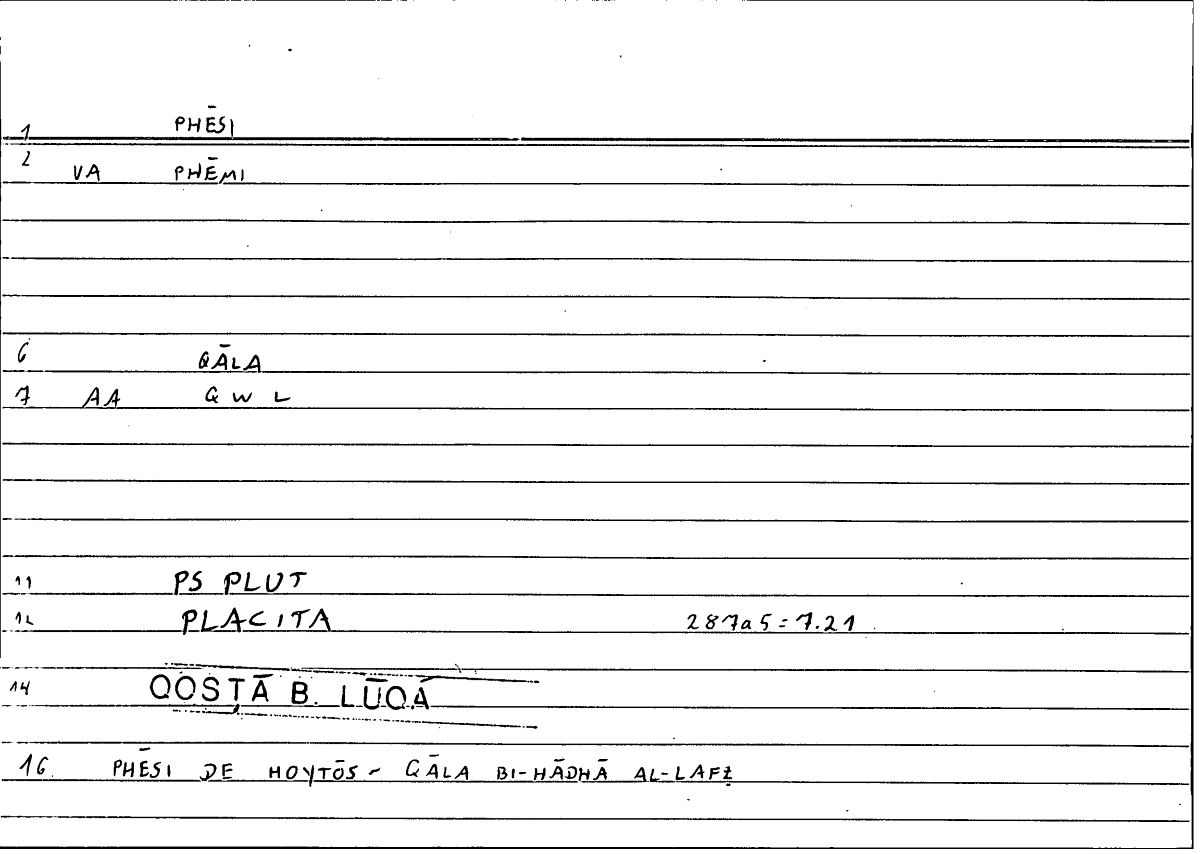 1 PHĒSI
2 VA PHĒMI
6 QĀLA
7 AA QWL
11 PS PLUT
12 PLACITA 287a5=7.21
14 QOSṬĀ B. LŪQÁ
16. PHĒSI DE HOYTŌS ~ QĀLA BI-HĀDHĀ AL-LAFẒ